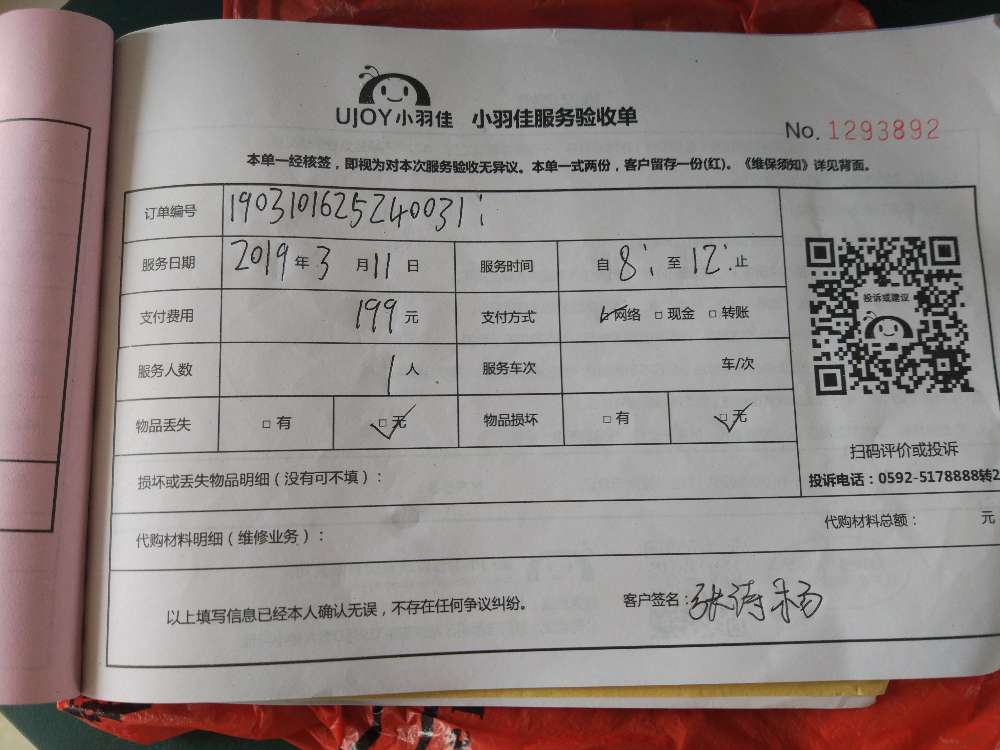 UJOY小羽佳 小羽佳服务验收单
No. 1293892
本单一经核签，即视为对本次服务验收无异议。本单一式两份，客户留存一份(红)。《维保须知》详见背面。
订单编号 1903101625240031
服务日期 2019年3月11日 服务时间 自8:至12:止
支付费用 199元 支付方式 ☑网络 □现金 □转账
服务人数 1人 服务车次 车/次
物品丢失 □有 ☑无 物品损坏 □有 ☑无
投诉或建议
扫码评价或投诉
投诉电话：0592-5178888转2
损坏或丢失物品明细（没有可不填）：
代购材料明细（维修业务）： 代购材料总额： 元
以上填写信息已经本人确认无误，不存在任何争议纠纷。 客户签名：张涛杨